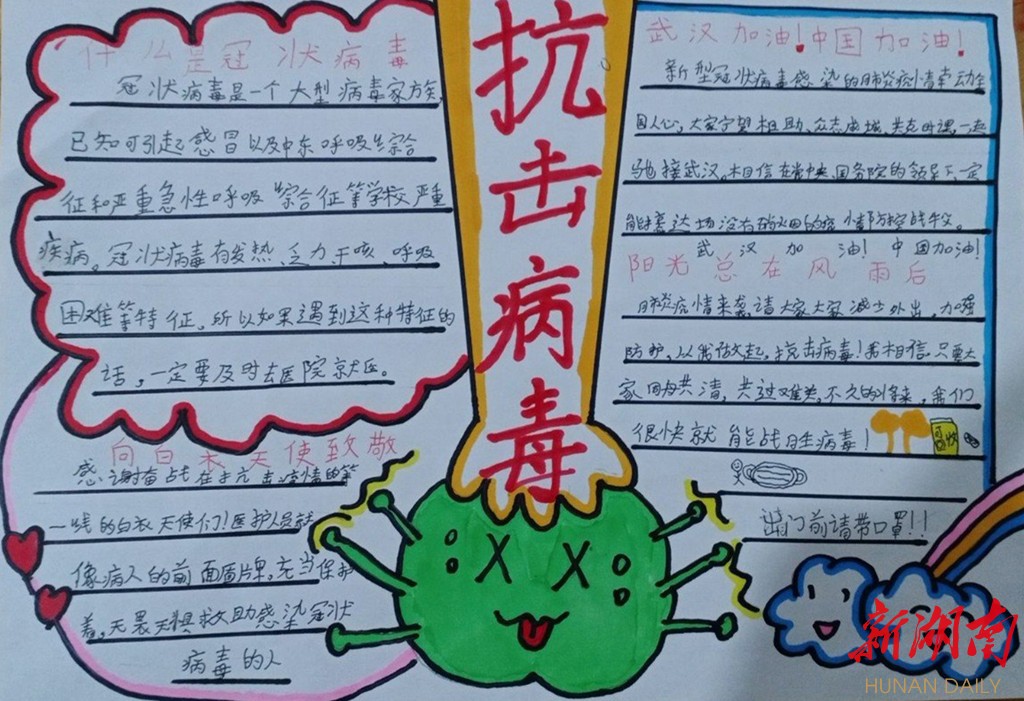 抗击病毒
什么是冠状病毒
冠状病毒是一个大型病毒家族,
已知可引起感冒以及中东呼吸综合
征和严重急性呼吸综合征等学校严重
疾病。冠状病毒有发热、乏力、干咳、呼吸
困难等特征,所以如果遇到这种特征的
话,一定要及时去医院京就医。
向白衣天使致敬
感谢奋战在抗击疫情的第
一线的白衣天使们!医护人员就
像病人的前面盾牌,充当保护
着,无畏无惧救助感染冠状
病毒的人
武汉加油!中国加油!
新型冠状病毒感染的肺炎疫情牵动全
国人心,大家守望相助、众志成城,共克时艰,一起
驰援武汉。相信在党中央、国务院的领导下,一定
能赛达场没有硝烟的疫情防控战役。
武汉加油!中国加油!
阳光总在风雨后
肺炎疫情来袭,请大家大家减少外出,加强
防护,从我做起,抗击病毒!我相信,只要大
家同舟共济,共过难关,不久的将来,我们
很快就能战胜病毒!
出门前请带口罩!!
新湖南
HUNAN DAILY